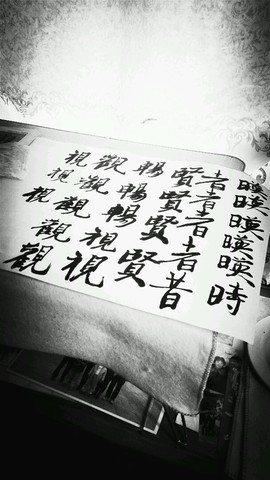 暎暎暎暎時
者者者者昔
賢賢賢賢
暢暢暢視視
觀觀觀觀觀
視視視